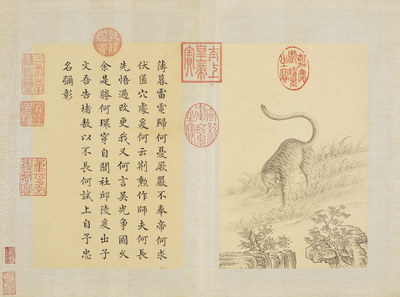 薄暮雷電歸何憂厥嚴不奉帝何求
伏匿穴處爰何云荊勳作師夫何長
先悟過改更我又何言吳光爭國久
余是勝何環穿自閭社邱陵爰出子
文吾告堵敖以不長何試上自予忠
名彌彰
太上皇帝之寶
嘉慶御覽之寶